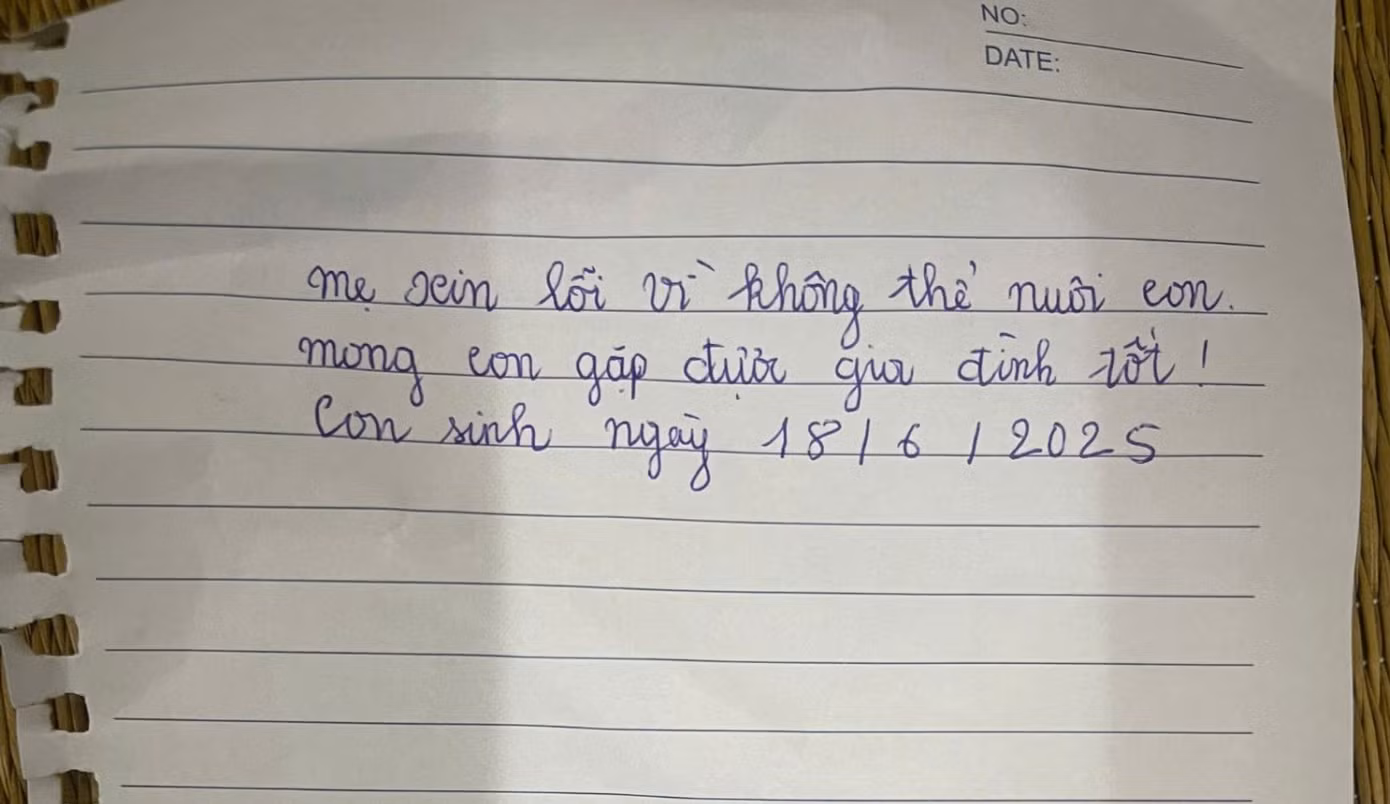 NO:
DATE:
Mẹ xin lỗi vì không thể nuôi con.
mong con gặp được gia đình tốt!
Con sinh ngày 18/6/2025